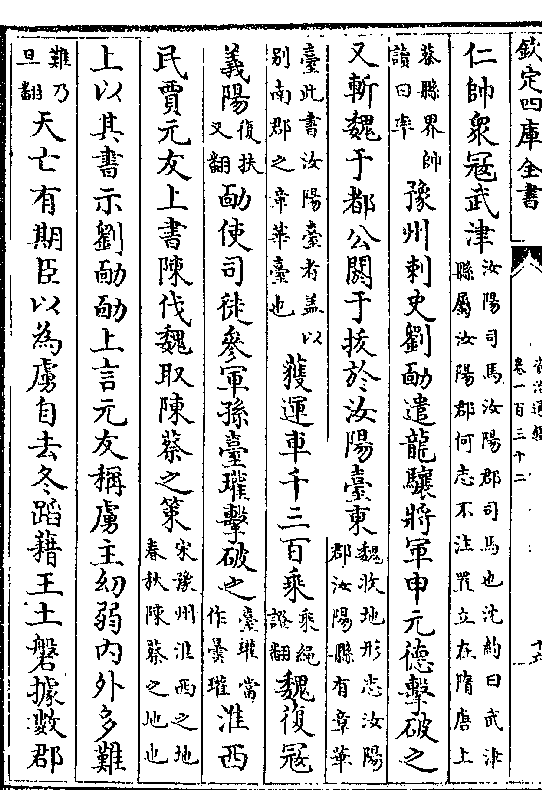 欽定四庫全書
資治通鑑
卷一百三十二
仁帥衆寇武津汝陽司馬汝陽郡司馬也沈約曰武津縣屬汝陽郡何志不注置立在隋唐上
蔡縣界帥讀曰率豫州刺史劉勔遣龍驤將軍申元德擊破之
又斬魏于都公閼于拔於汝陽臺東魏收地形志汝陽郡汝陽縣有章華
臺此書汝陽臺者盖以别南郡之章華臺也獲運車千三百乘乘繩證翻魏復寇
義陽復扶又翻勔使司徒參軍孫臺瓘擊破之臺瓘當作曇瓘淮西
民賈元友上書陳伐魏取陳蔡之策宋豫州淮西之地春秋陳蔡之地也
上以其書示劉勔勔上言元友稱虜主幼弱内外多難
難乃旦翻天亡有期臣以為虜自去冬蹈藉王土磐據數郡